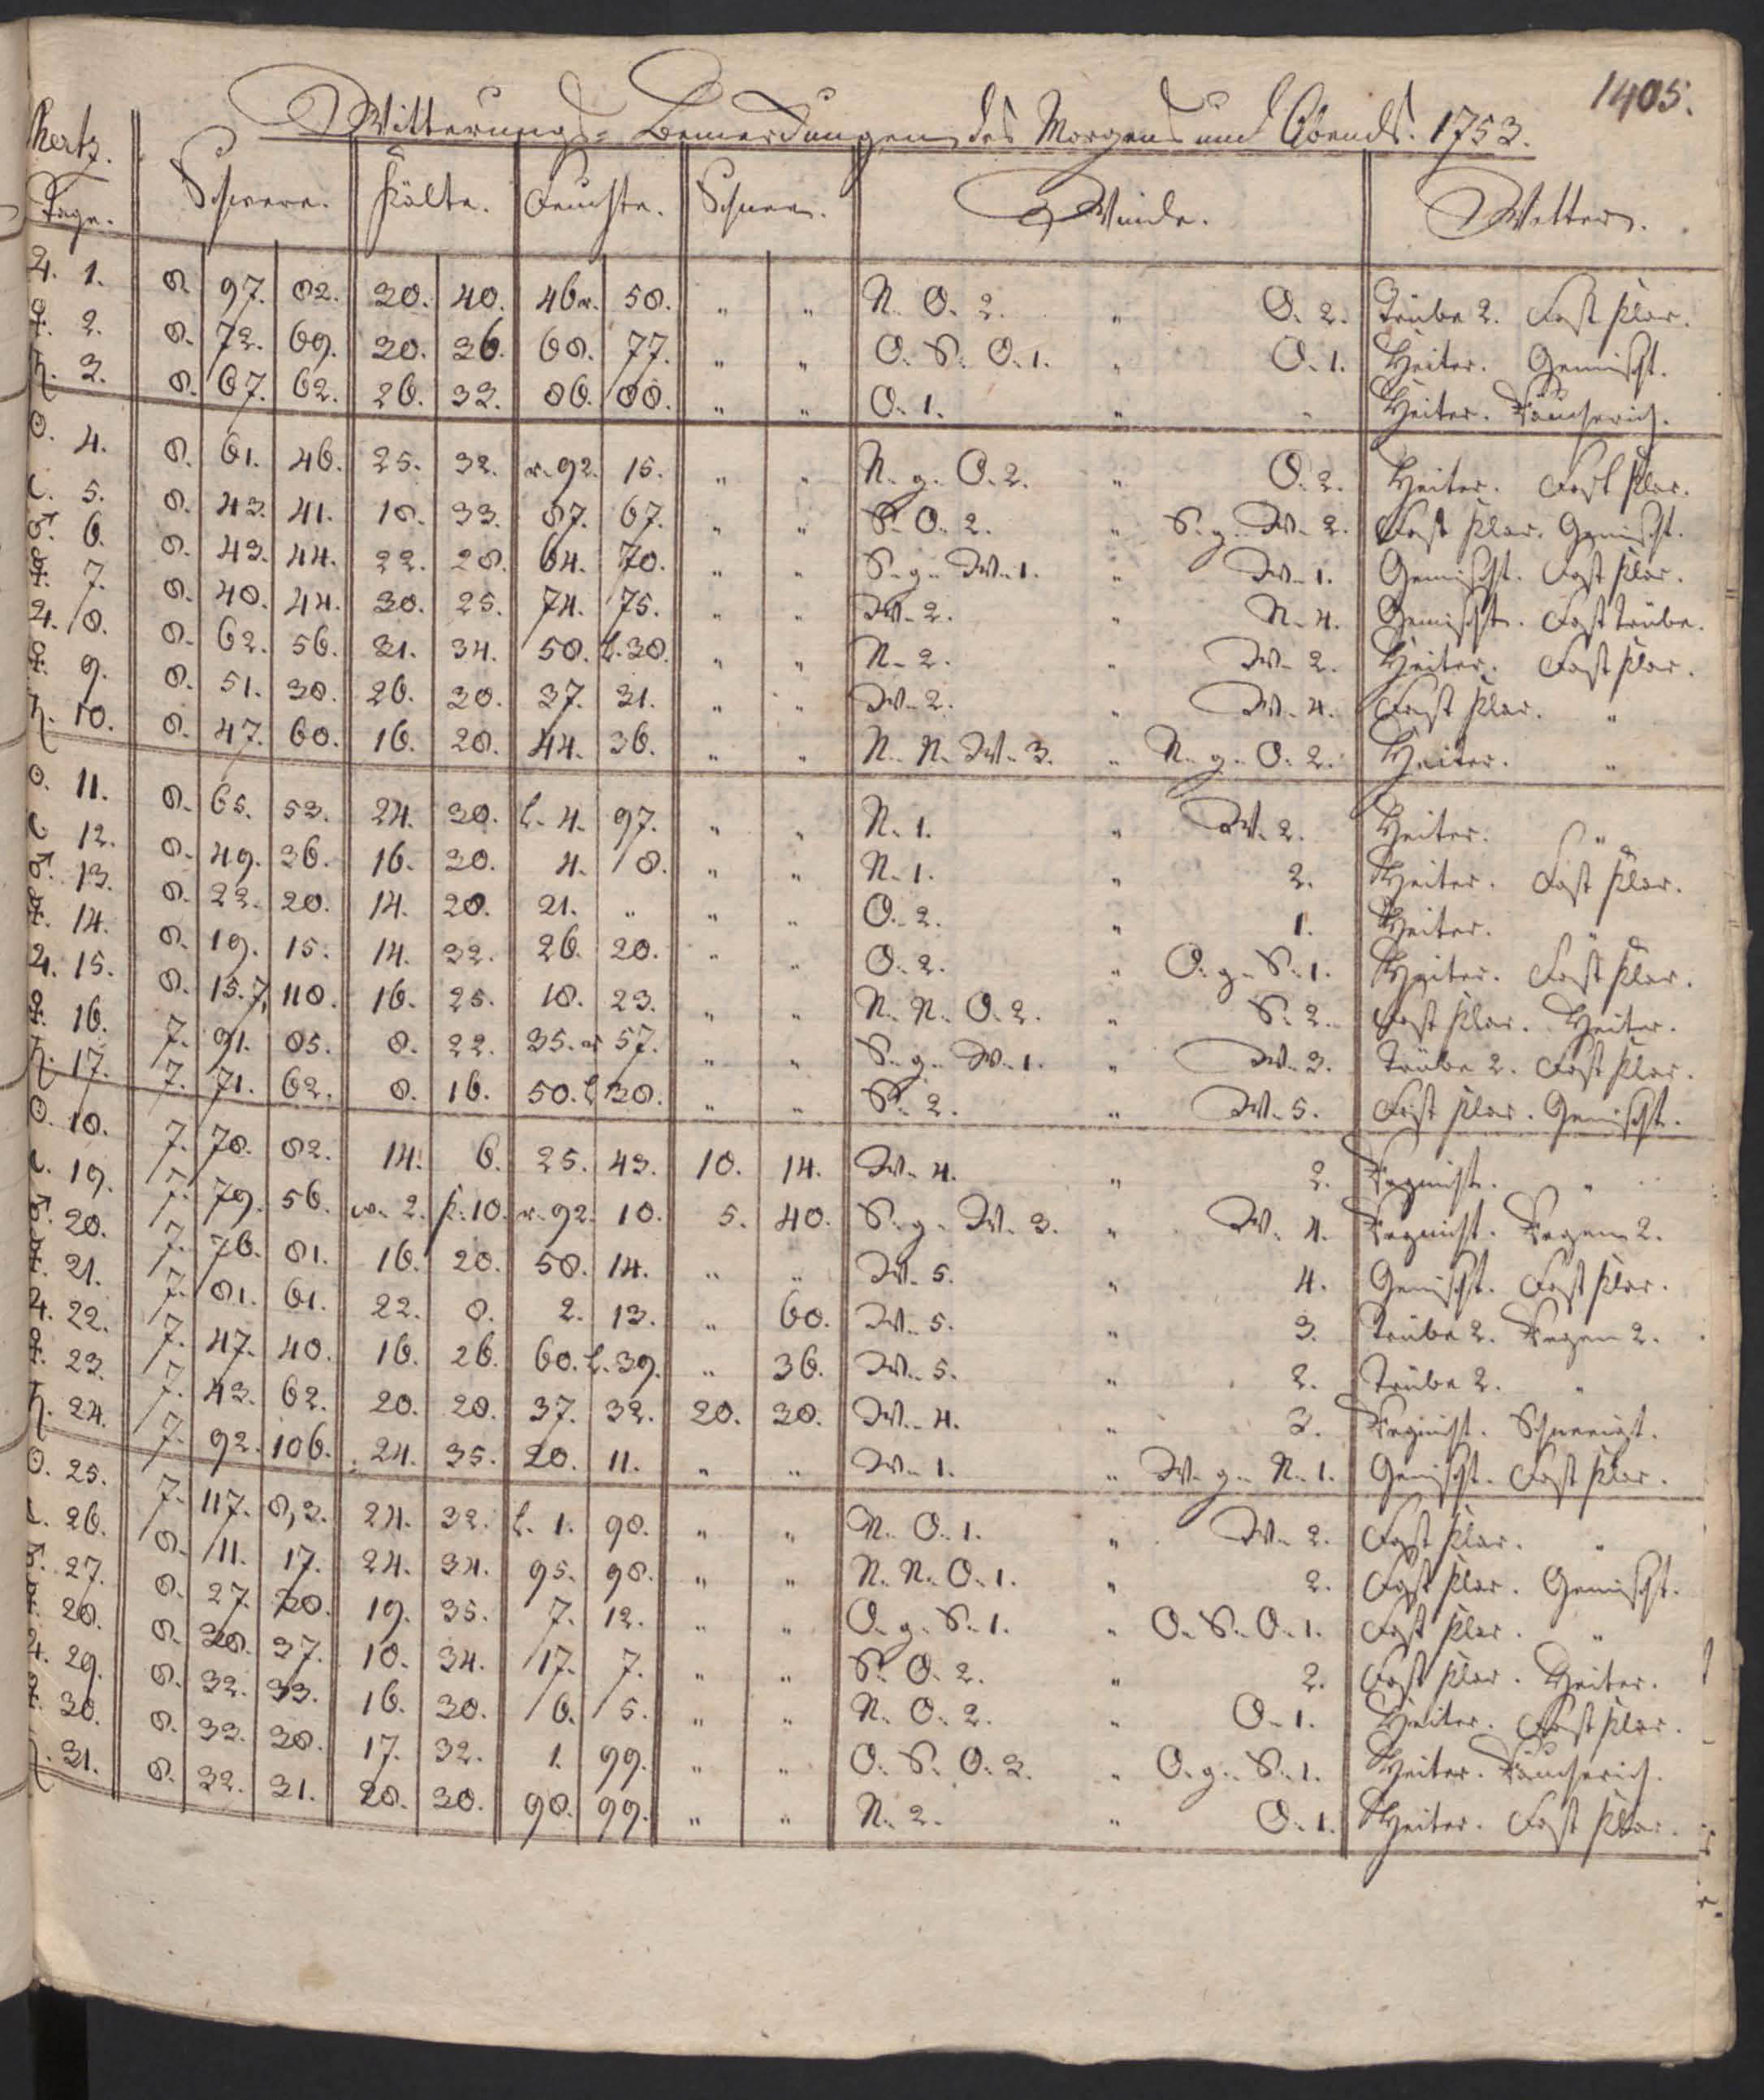 1405.
Witterungs- Bemerckungen des Morgens und Abends. 1753.
Mertz. Tage. Schwere. Kälte. Feuchte. Schnee. Winde. Wetter.
♃. 1. 8. 97. 82. 30. 40. 46 r. 58. " " N. O. 2. " O. 2. Trübe 2. Fast klar.
♀. 2. 8. 72. 69. 30. 36. 68. 77. " " O. S. O. 1. " O. 1. Heiter. Gemischt.
♄. 3. 8. 67. 62. 26. 33. 86. 88. " " O. 1. " " Heiter. Räucherich.
☉. 4. 8. 61. 46. 25. 32. r. 92. 15. " " N. g. O. 2. " O. 2. Heiter. Fast klar.
☾. 5. 8. 43. 41. 18. 33. 87. 67. " " S. O. 2. " S. g. W. 2. Fast klar. Gemischt.
♂. 6. 8. 43. 44. 22. 28. 64. 70. " " S. g. W. 1. " W. 1. Gemischt. Fast klar.
☿. 7. 8. 48. 44. 30. 25. 74. 75. " " W. 2. " N. 4. Gemischt. Fast trübe.
♃. 8. 8. 62. 56. 31. 34. 50. l. 38. " " N. 2. " W. 2. Heiter. Fast klar.
♀. 9. 8. 51. 38. 26. 30. 37. 31. " " W. 2. " W. 4. Fast klar. "
♄. 10. 8. 47. 60. 16. 28. 44. 36. " " N. N. W. 3. " N. g. O. 2. Heiter. "
☉. 11. 8. 65. 53. 24. 30. l. 4. 97. " " N. 1. " W. 2. Heiter. "
☾. 12. 8. 49. 36. 16. 30. 4. 8. " " N. 1. " 2. Heiter. Fast klar.
♂. 13. 8. 22. 20. 14. 28. 21. " " " O. 2. " 1. Heiter. "
☿. 14. 8. 19. 15. 14. 32. 26. 20. " " O. 2. " O. g. S. 1. Heiter. Fast klar.
♃. 15. 8. 15. 7, 118. 16. 25. 18. 23. " " N. N. O. 2. " S. 2. Fast klar. Heiter.
♀. 16. 7. 91. 85. 8. 22. 35. r 57. " " S. g. W. 1. " W. 3. Trübe 2. Fast klar.
♄. 17. 7. 71. 62. 8. 16. 50. l 38. " " S. 2. " W. 5. Fast klar. Gemischt.
☉. 18. 7. 78. 82. 14. 6. 25. 43. 10. 14. W. 4. " 2. Regnicht. "
☾. 19. 7. 79. 56. w. 2. k. 10. r. 92. 10. 5. 40. S. g. W. 3. " W. 4. Regnicht. Regen 2.
♂. 20. 7. 76. 81. 16. 20. 58. 14. " " W. 5. " 4. Gemischt. Fast klar.
☿. 21. 7. 81. 61. 22. 8. 2. 13. " 60. W. 5. " 3. Trübe 2. Regen 2.
♃. 22. 7. 47. 40. 16. 26. 60. l. 39. " 36. W. 5. " 2. Trübe 2. "
♀. 23. 7. 43. 62. 20. 28. 37. 32. 20. 30. W. 4. " 3. Regnicht. Schneeigt.
♄. 24. 7. 92. 106. 24. 35. 20. 11. " " W. 1. " W. g. N. 1. Gemischt. Fast klar.
☉. 25. 7. 117. 8, 3. 24. 32. l. 1. 98. " " N. O. 1. " W. 2. Fast klar. "
☾. 26. 8. 11. 17. 24. 34. 95. 98. " " N. N. O. 1. " 2. Fast klar. Gemischt.
♂. 27. 8. 27. 28. 19. 35. 7. 12. " " O. g. S. 1. " O. S. O. 1. Fast klar. "
☿. 28. 8. 38. 37. 18. 34. 17. 7. " " S. O. 2. " 2. Fast klar. Heiter.
♃. 29. 8. 32. 33. 16. 30. 6. 5. " " N. O. 2. " O. 1. Heiter. Fast klar.
♀. 30. 8. 33. 38. 17. 32. 1. 99. " " O. S. O. 3. " O. g. S. 1. Heiter. Räucherich.
♄. 31. 8. 32. 31. 20. 30. 98. 99. " " N. 2. " O. 1. Heiter. Fast klar.